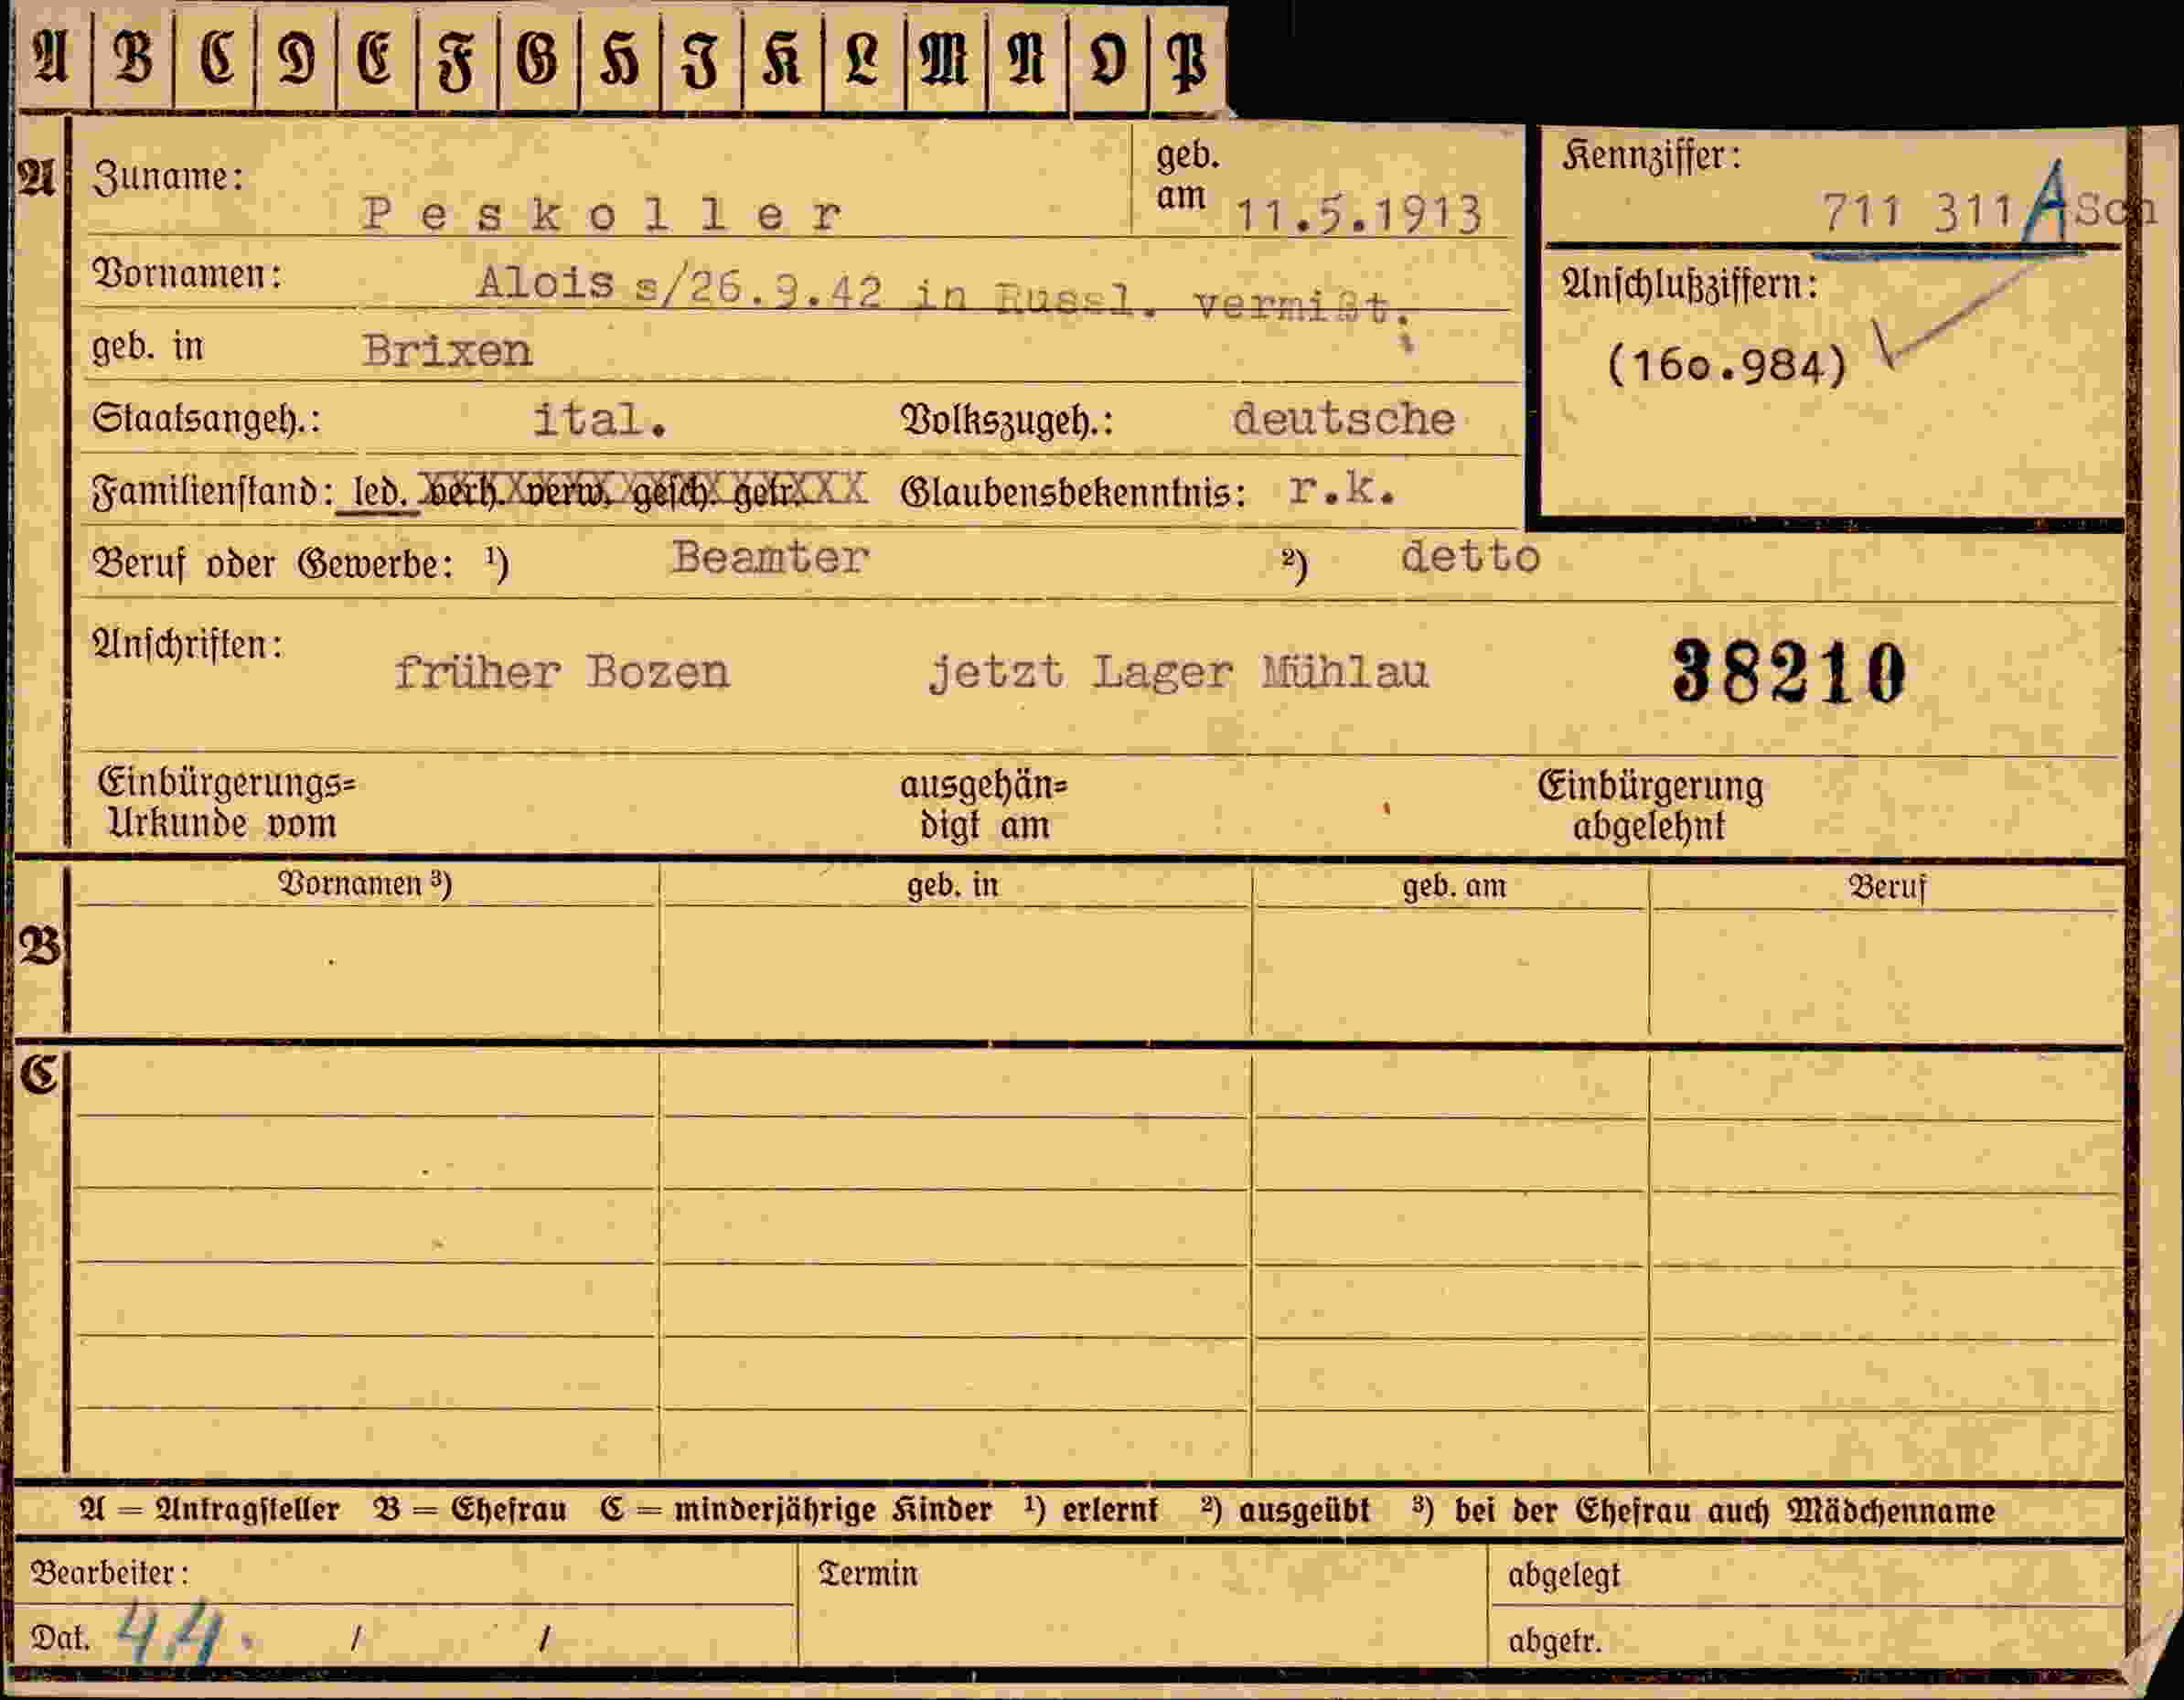 A B C D E F G H J K L M N O P
A Zuname: Peskoller geb. am 11.5.1913 Kennziffer: 711 311 A Sch
Vornamen: Alois s/26.9.42 in Russl. vermißt. Anschlußziffern:
geb. in Brixen (160.984)
Staatsangeh.: ital. Volkszugeh.: deutsche
Familienstand: led. verh. verw. gesch. getr. Glaubensbekenntnis: r.k.
Beruf oder Gewerbe: ¹) Beamter ²) detto
Anschriften: früher Bozen jetzt Lager Mühlau 38210
Einbürgerungs= ausgehän= Einbürgerung
Urkunde vom digt am abgelehnt
Vornamen ³) geb. in geb. am Beruf
B
C
A = Antragsteller B = Ehefrau C = minderjährige Kinder ¹) erlernt ²) ausgeübt ³) bei der Ehefrau auch Mädchenname
Bearbeiter: Termin abgelegt
Dat. 44. / / abgetr.